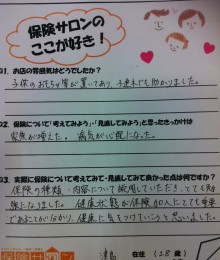 保険サロンの
ここが好き!
Q1. お店の雰囲気はどうでしたか?
子供のおもちゃ等が置いてあり、子連れでも助かりました。
Q2. 保険について「考えてみよう」・「見直してみよう」と思ったきっかけは
家族が増えた。病気が心配になった。
Q3. 実際に保険について考えてみて・見直してみて良かった点は何ですか?
保険の種類・内容について説明していただき、とても勉
強になりました。健康状態が保険加入にとても重要
であることが分かり、健康に気をつけていこうと思いました。
保険サロン
在住 (28歳)